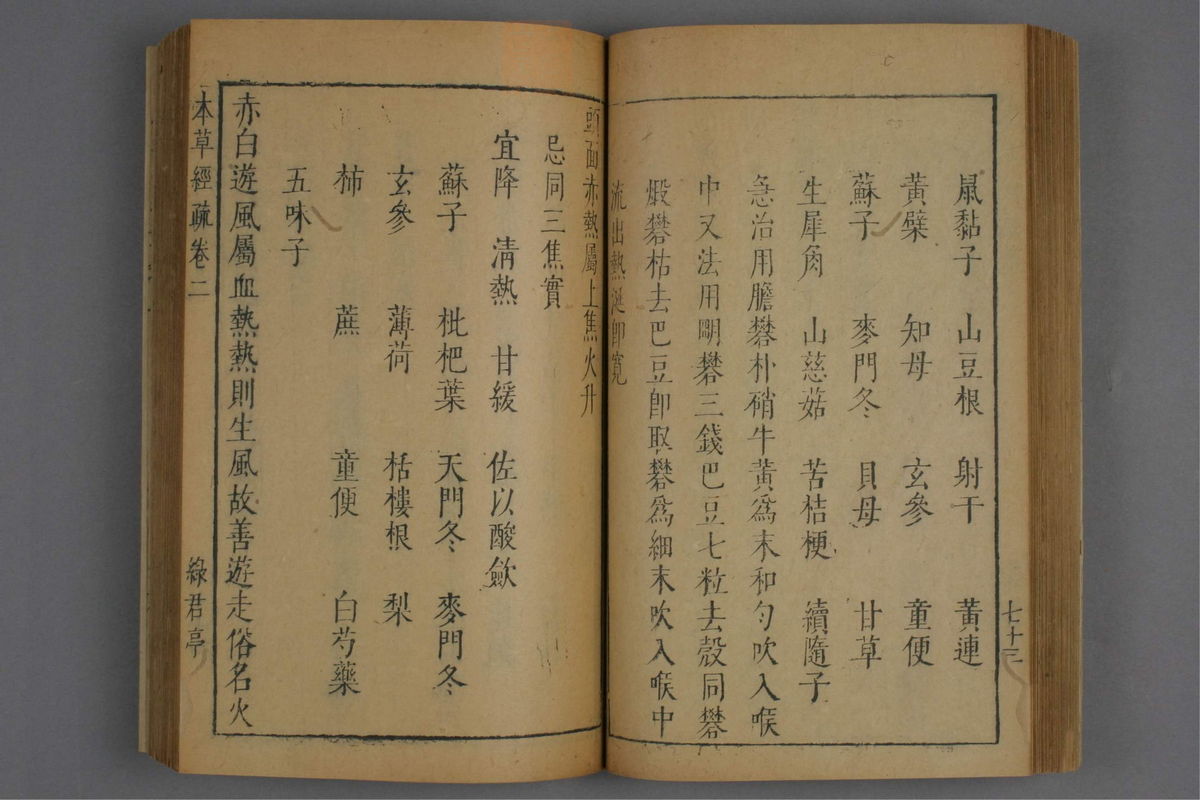 鼠黏子 山豆根 射干 黃連
黃檗 知母 玄參 童便
蘇子 麥門冬 貝母 甘草
生犀角 山慈菇 苦桔梗 續隨子
急治用膽礬朴硝牛黃爲末和勻吹入喉
中又法用明礬三錢巴豆七粒去殼同礬
煅礬枯去巴豆即取礬爲細末吹入喉中
流出熱涎即寬
七十三
頭面赤熱屬上焦火升
忌同三焦實
宜降 清熱 甘緩 佐以酸斂
蘇子 枇杷葉 天門冬 麥門冬
玄參 薄荷 栝樓根 梨
柿 蔗 童便 白芍藥
五味子
赤白遊風屬血熱熱則生風故善遊走俗名火
本草經疏卷二 綠君亭